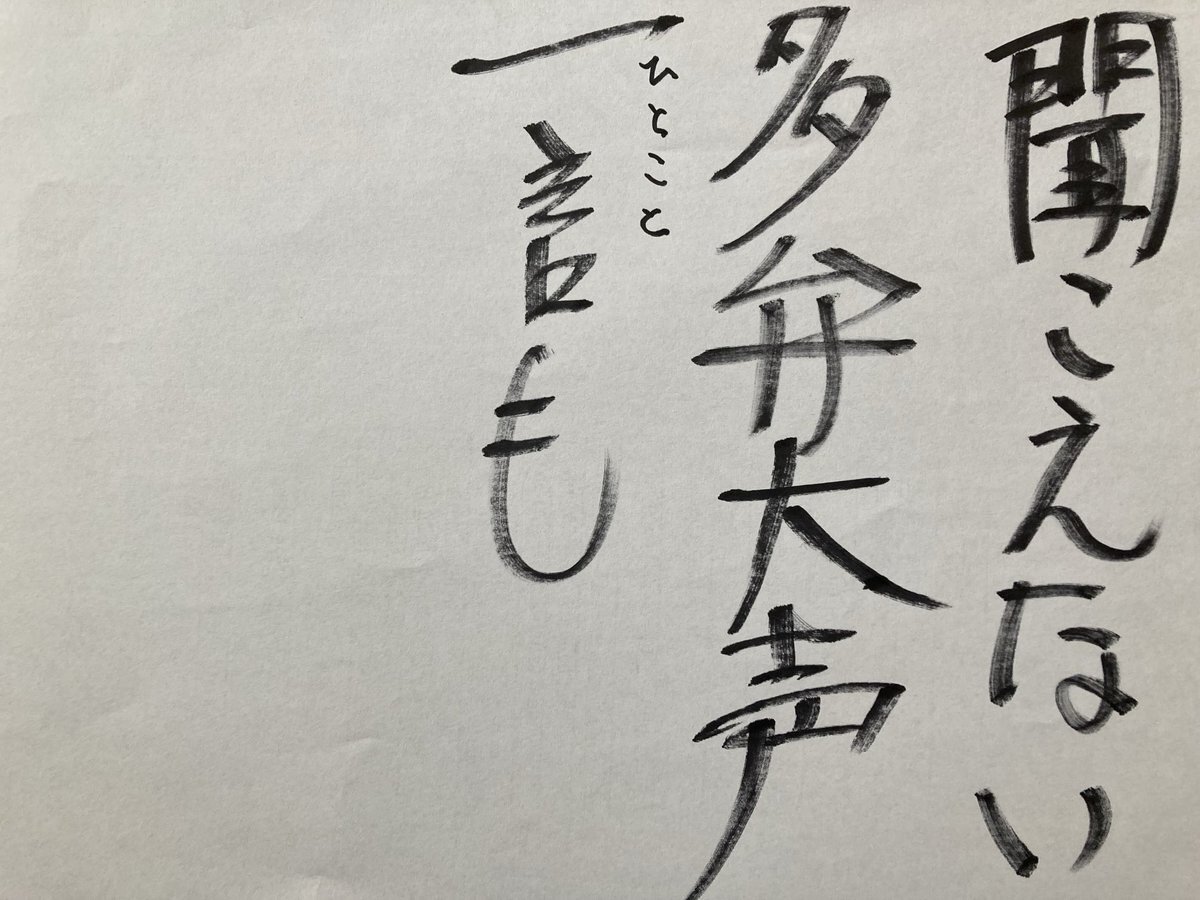 聞こえない
多弁大声
ひとこと
一言も